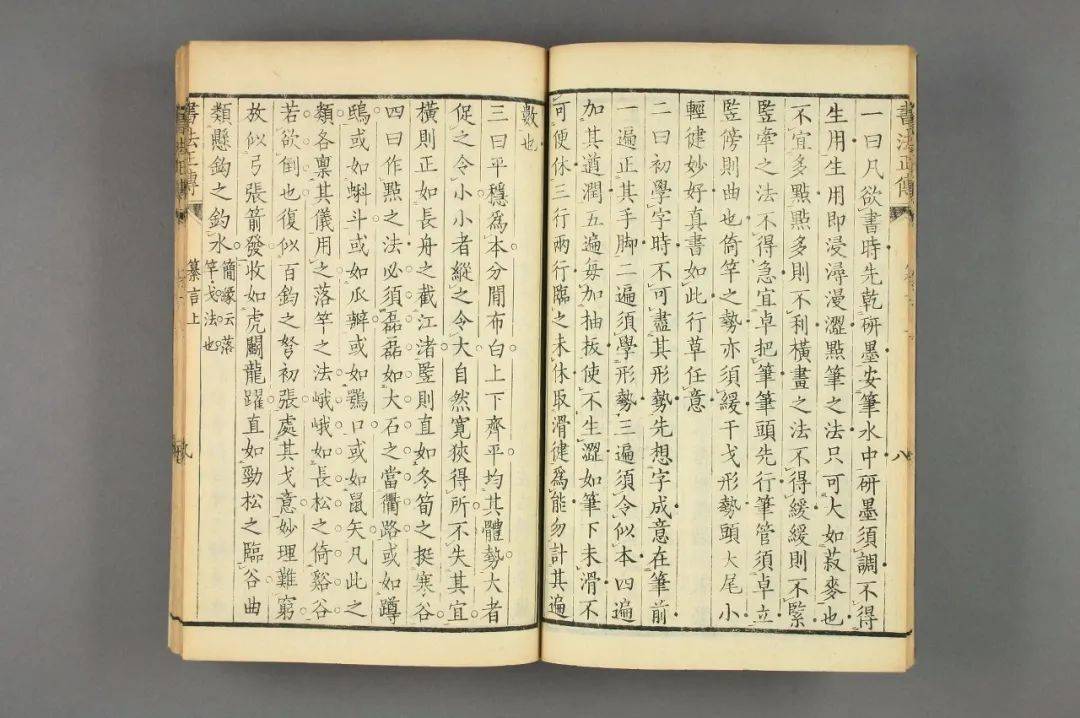 書法正傳
一曰凡欲書時先乾研墨安筆水中研墨須調不得
生用生用即浸潯漫澀點筆之法只可大如菽麥也
不宜多點點多則不利橫畫之法不得緩緩則不緊
豎牽之法不得急宜卓把筆筆頭先行筆管須卓立
豎傍則曲也倚竿之勢亦須緩干戈形勢頭大尾小
輕健妙好真書如此行草任意
二曰初學字時不可盡其形勢先想字成意在筆前
一遍正其手脚二遍須學形勢三遍須令似本四遍
加其遒潤五遍每加抽拔使不生澀如筆下未滑不
可便休三行兩行臨之未休取滑健爲能勿計其遍
八
數也
三曰平穩爲本分閒布白上下齊平均其體勢大者
促之令小小者縱之令大自然寛狹得所不失其宜
橫則正如長舟之截江渚豎則直如冬筍之挺寒谷
四曰作點之法必須磊磊如大石之當衢路或如蹲
鴟或如蝌斗或如瓜瓣或如鶚口或如鼠矢凡此之
類各禀其儀用之落竿之法峨峨如長松之倚谿谷
若欲倒也復似百鈞之弩初張處其戈意妙理難窮
放似弓張箭發收如虎鬭龍躍直如勁松之臨谷曲
類懸鈎之釣水簡緣云落竿戈法也
書法正傳
纂言上
九